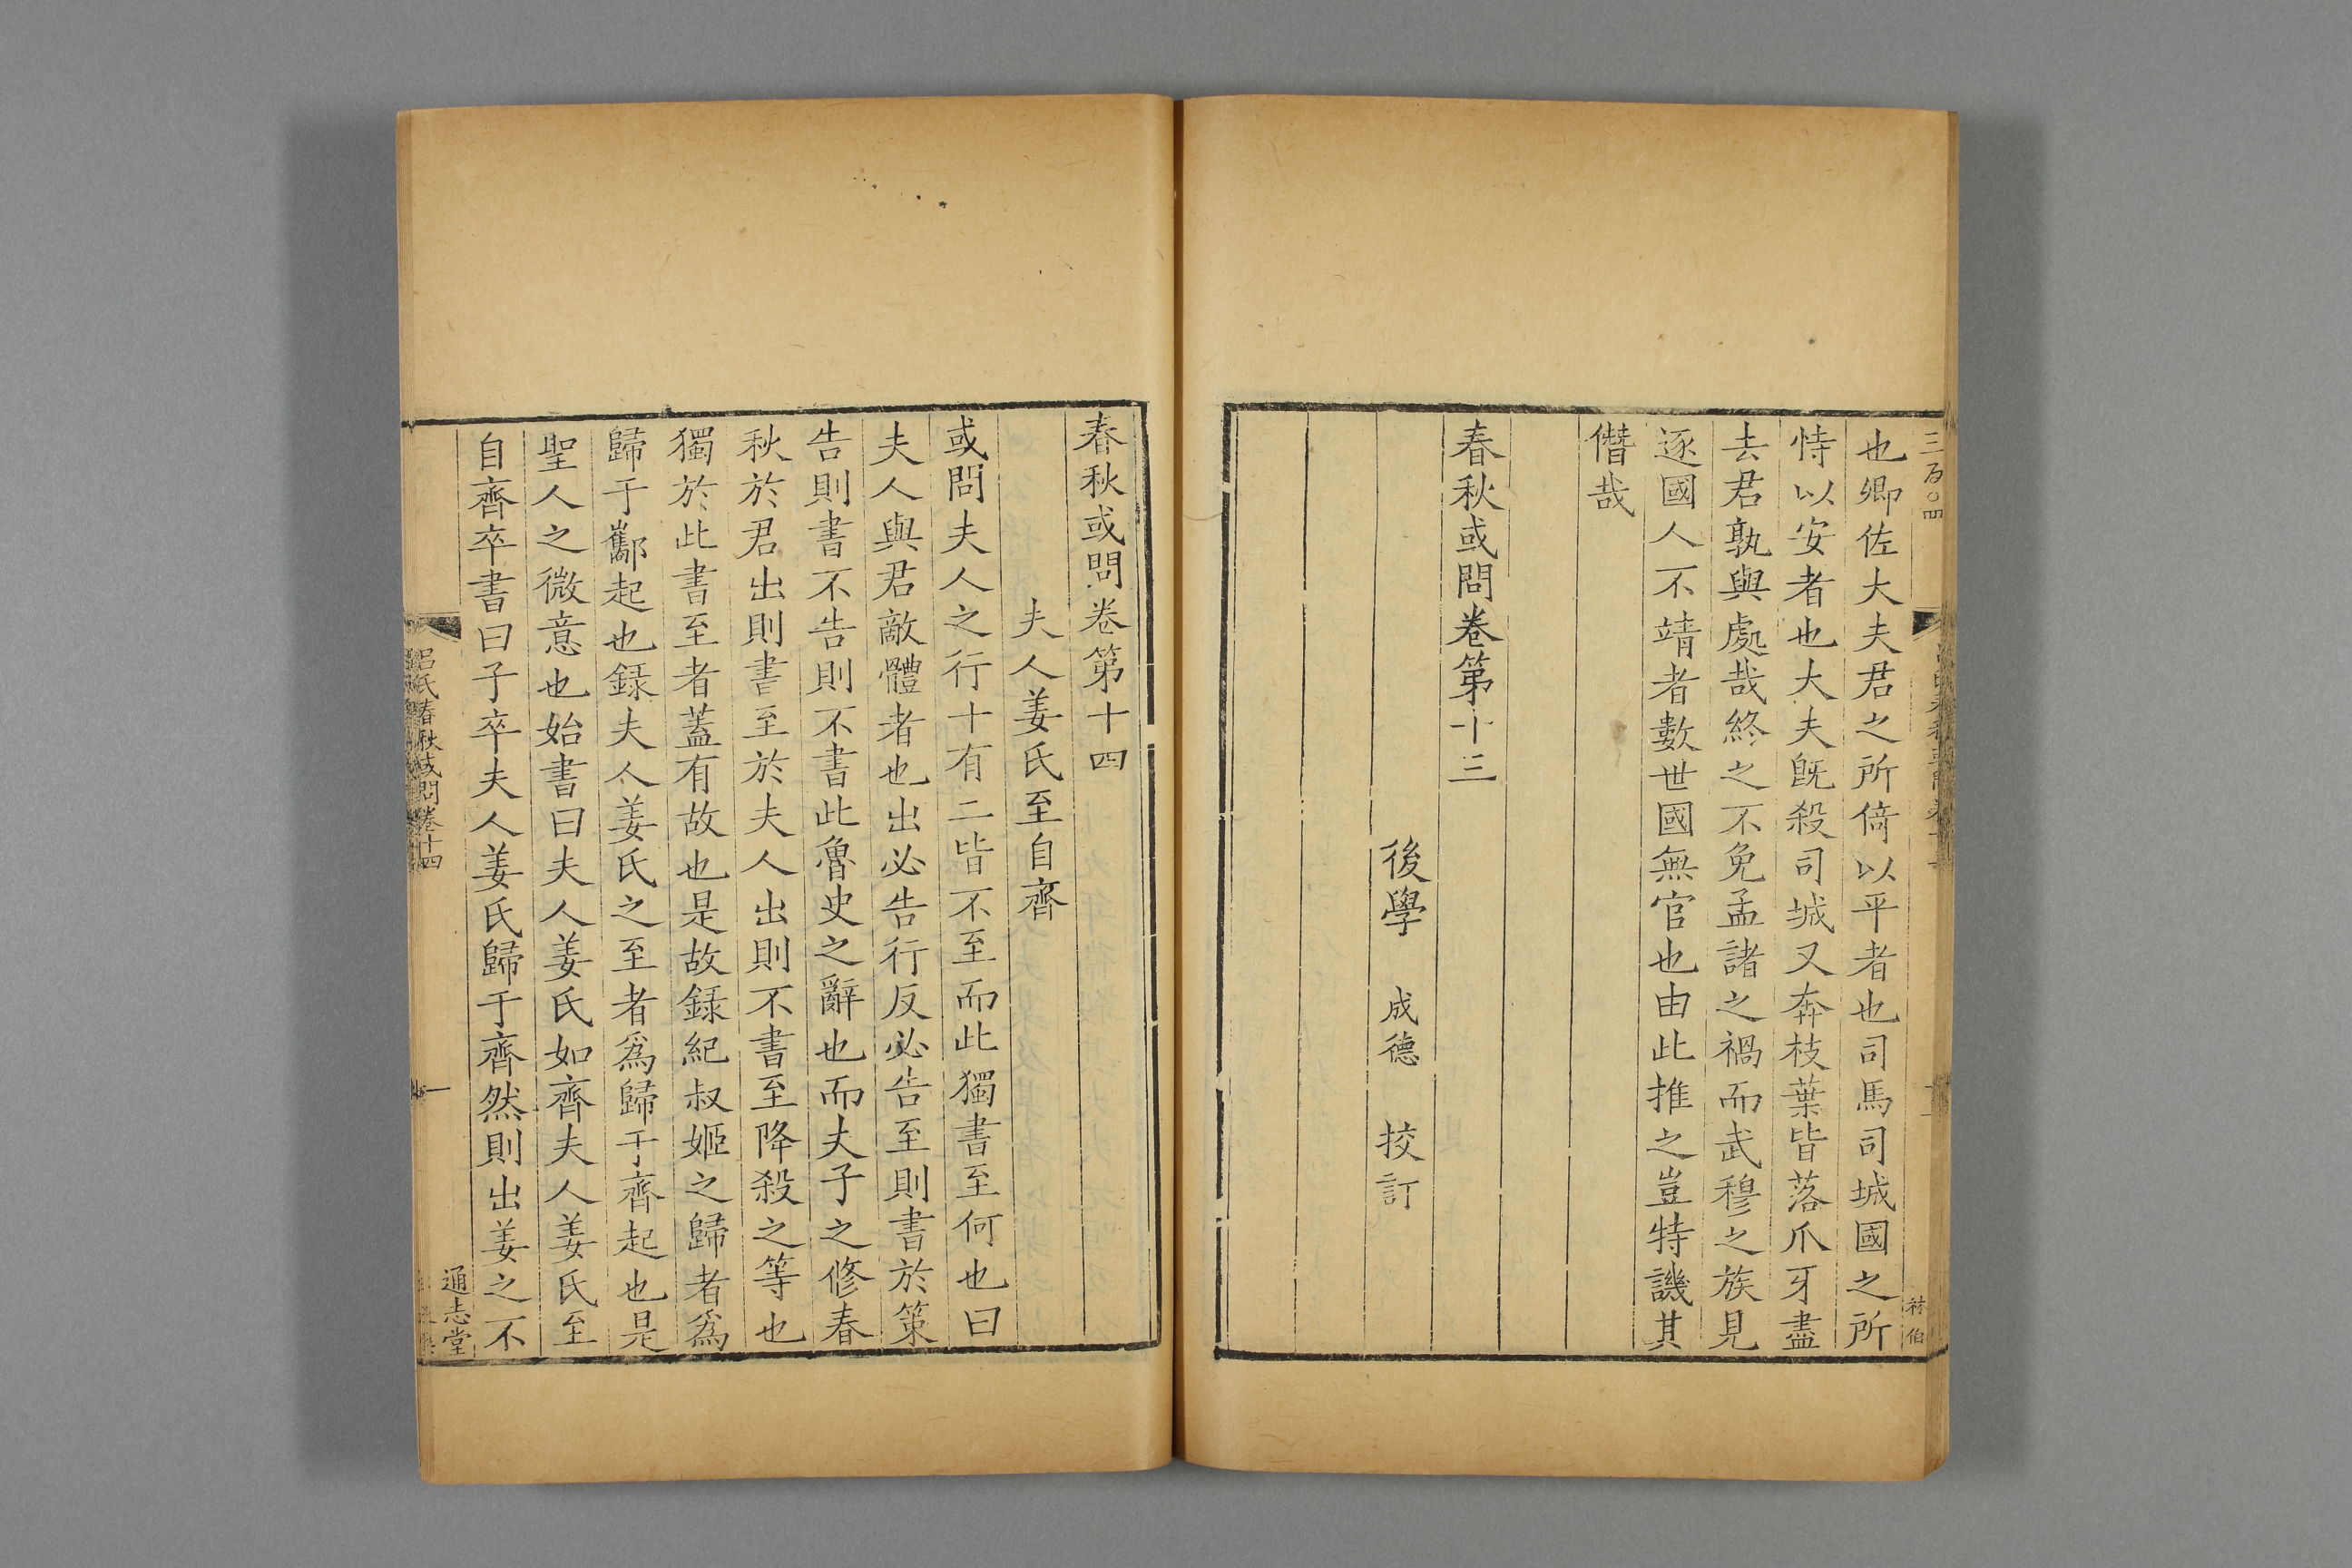 三百〇四
也卿佐大夫君之所倚以平者也司馬司城國之所
恃以安者也大夫旣殺司城又奔枝葉皆落爪牙盡
去君孰與處哉終之不免孟諸之禍而武穆之族見
逐國人不靖者數世國無官也由此推之豈特譏其
僭哉
春秋或問卷第十三
後學 成德 挍訂
春秋或問卷第十四
夫人姜氏至自齊
或問夫人之行十有二皆不至而此獨書至何也曰
夫人與君敵體者也出必告行反必告至則書於策
告則書不告則不書此魯史之辭也而夫子之修春
秋於君出則書至於夫人出則不書至降殺之等也
獨於此書至者蓋有故也是故録紀叔姬之歸者爲
歸于酅起也録夫人姜氏之至者爲歸于齊起也是
聖人之微意也始書曰夫人姜氏如齊夫人姜氏至
自齊卒書曰子卒夫人姜氏歸于齊然則出姜之不
呂氏春秋或問卷十四
一
通志堂